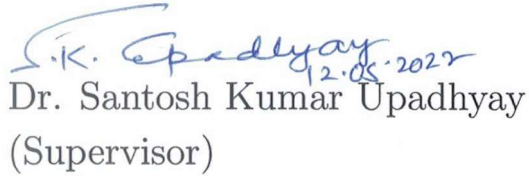 S.K. Upadhyay
12.05.2022
Dr. Santosh Kumar Upadhyay
(Supervisor)